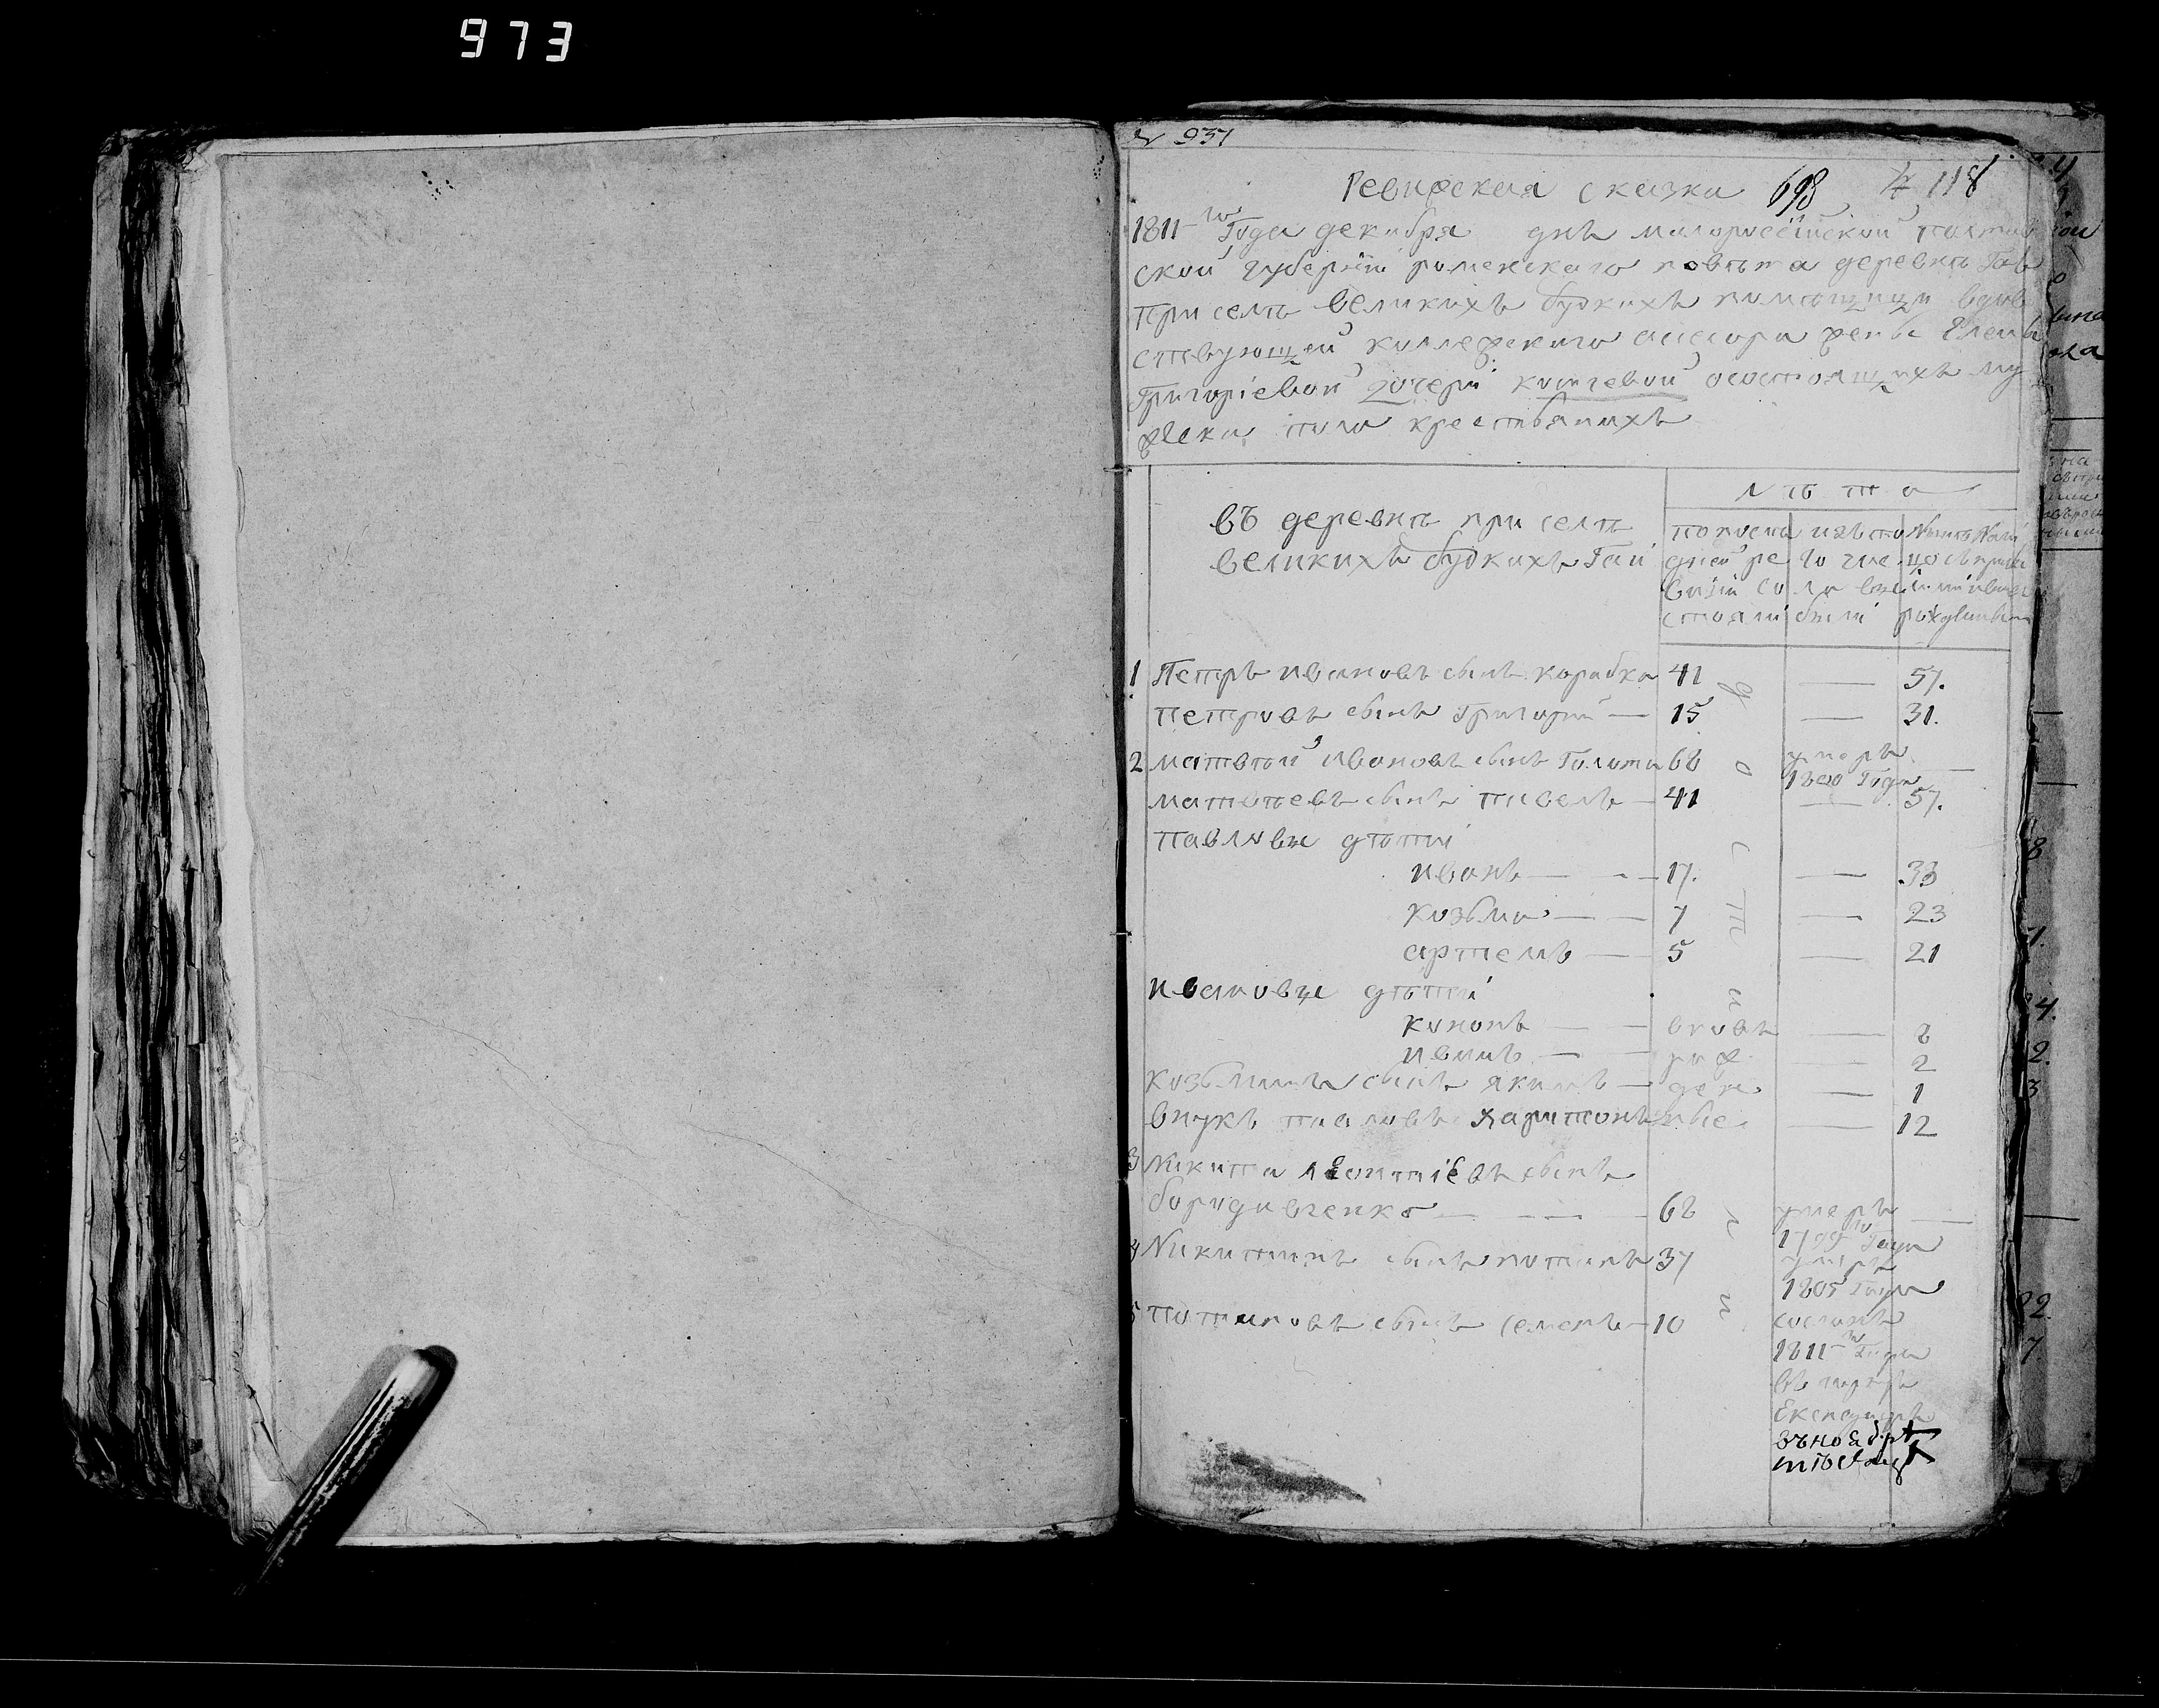 973
№ 951
Ревижская сказка 698 № 118
1811-го Года декабря дня малороссійской полтав
ской губерніи роменского повѣта деревнѣ Гаю
при селѣ великихъ будкихъ помѣщици вдов
ствующей коллежского асесора Елены
Григоріевой дочери осостоящихъ му
жеска пола крестьянихъ
Лѣта
въ деревнѣ при селѣ
великихъ будкихъ Гаи
по послѣ
дней ре
визіи со
стояли
изъ то
го чис
ла вы
были
Нынѣ на ли
цо съ прибы
рожденными
1 Петръ Ивановъ сынъ Коробка 41 — 57.
Петровъ сынъ Григорий — 15 — 31.
2 Матвѣй Ивановъ сынъ Голота 68 умеръ —
1800 Года
Матвѣевъ сынъ Павелъ — 41 — 57.
Павловы дѣти
Иванъ — 17. — 33
Козьма — 7 — 23
Артемъ — 5 — 21
Ивановы дѣти
Кононъ — вновь — 8
Иванъ — рож — 2
Козьминъ сынъ Якимъ — ден — 1
внукъ Павловъ Харитонъ ные — 12
3 Никита Леонтіевъ сынъ
Бородавченко — 68 умеръ —
1799 го Года
4 Никитинъ сынъ Потапъ 37 умеръ
1805 Года
5 Потаповъ сынъ Семенъ — 10 сосланъ
1811-го Года
въ
въ ноябрѣ
мѣсяцѣ
достигли